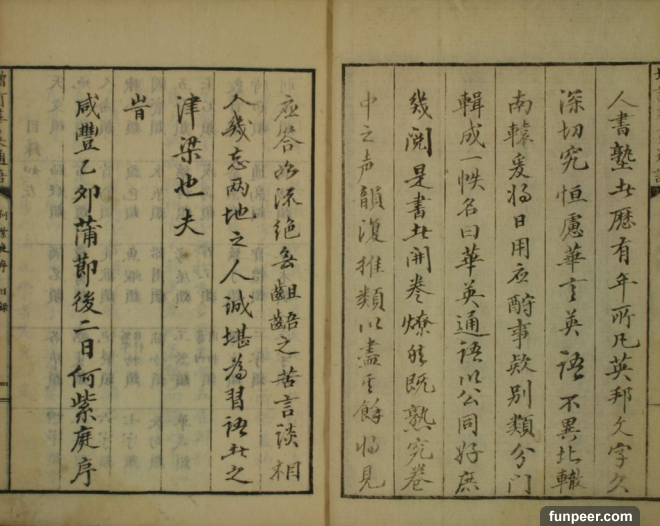 人書塾此歷有年所凡英邦文字久
深切究恒慮華言英語不異北轍
南轅爰將日用應酧事欵別類分門
輯成一帙名曰華英通語以公同好庶
幾閱是書此開卷燎然既熟究卷
中之声韻復推類以盡其餘將見
應答如流絕無齟齬之苦言談相
人幾忘兩地之人誠堪為習語此之
津梁也夫
旹
咸豐乙卯蒲節後二日何紫庭序
funpeer.com